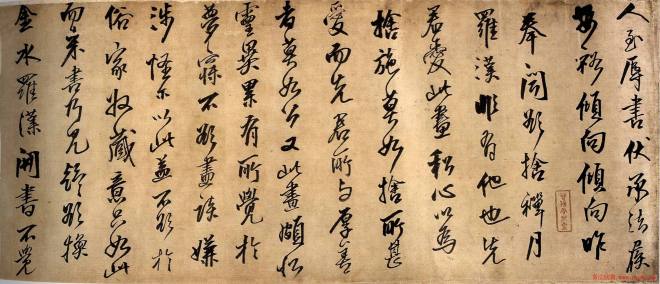 人至辱書伏承法履
安裕傾向傾向昨
奉聞欲捨禪月
羅漢非有他也先
君愛此畫私心以為
捨施莫如捨所甚
愛而先君所与厚善
者莫如公又此畫頗似
靈異累有所覺於
夢寐不欲盡談嫌
涉怪尔以此益不欲於
俗家收藏意只如此
而來書乃見疑欲換
金水羅漢開書不覺